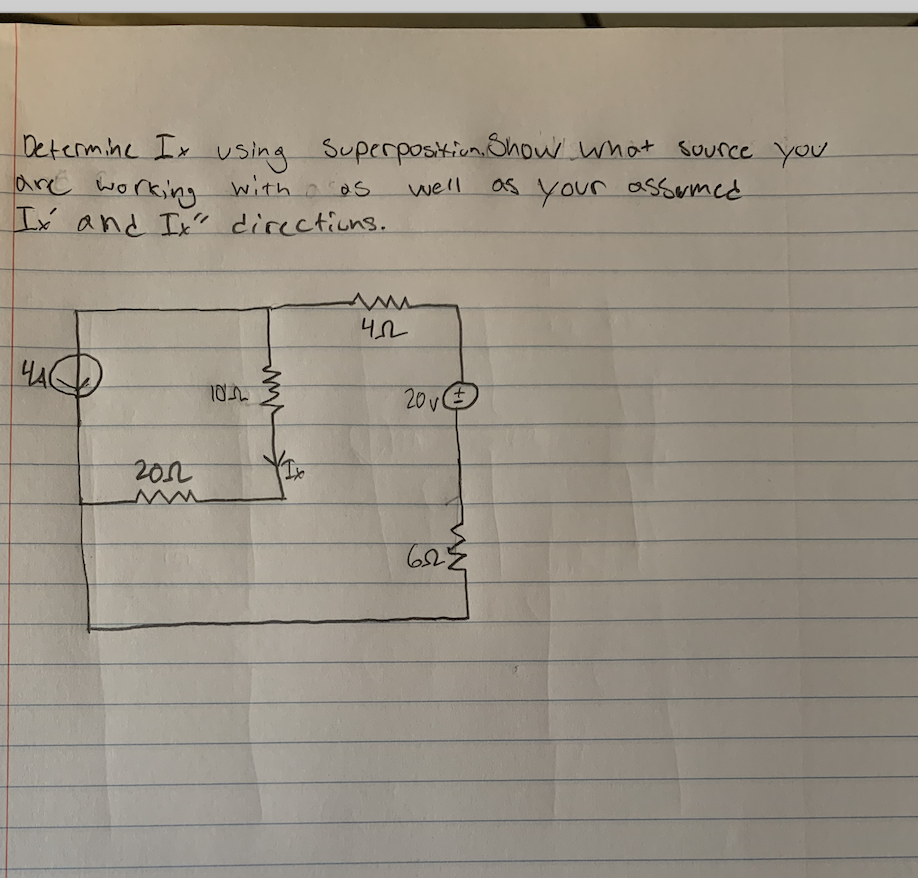 Determine Ix using Superposition. Show what source you
are working with as well as your assumed
Ix' and Ix" directions.
4Ω
4A
10Ω
20v
±
20Ω
Ix
6Ω